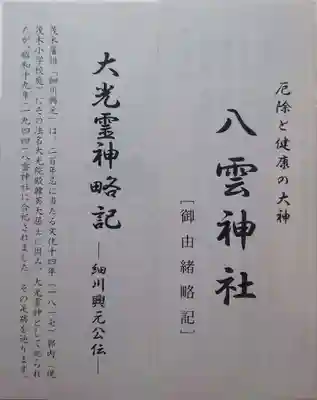 厄除と健康の大神
八雲神社
[御由緒略記]
大光霊神略記
―細川興元公伝―
茂木藩祖「細川興元」は、二百年忌に当たる文化十四年(一八一七)郭内(現
茂木小学校庭)にその法名大光院殿
に因み、大光霊神として祀られ
たが、昭和十九年(一九四四)八雲神社に合祀されました。その足跡を辿ります。